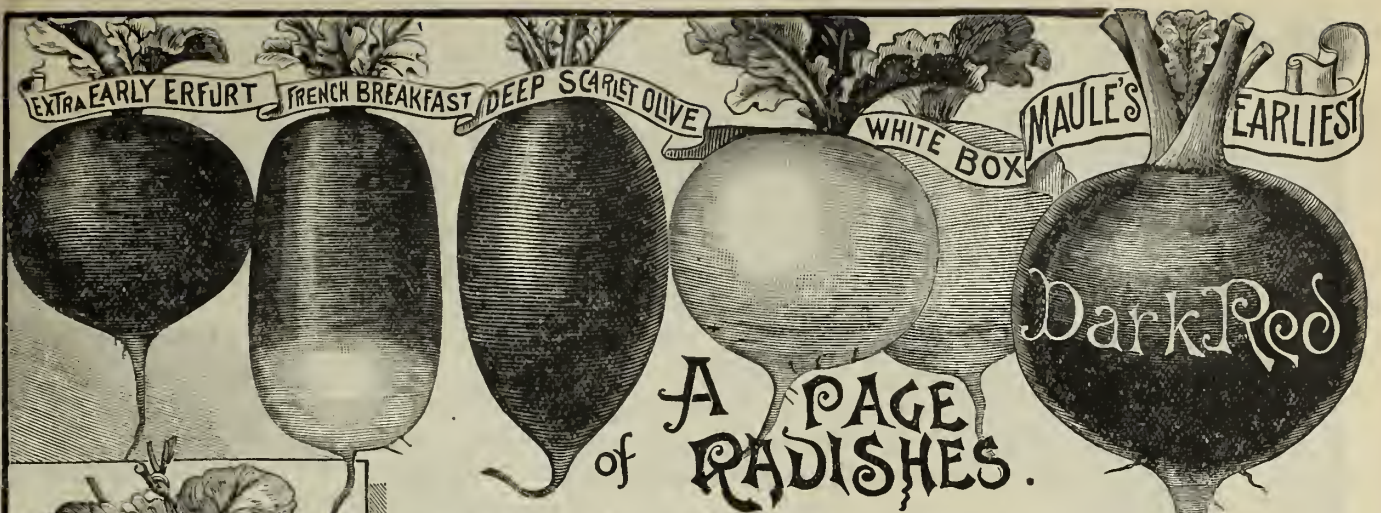 EXTRA EARLY ERFURT
FRENCH BREAKFAST
DEEP SCARLET OLIVE
WHITE BOX
MAULE'S EARLIEST
Dark Red
A PAGE
of RADISHES.